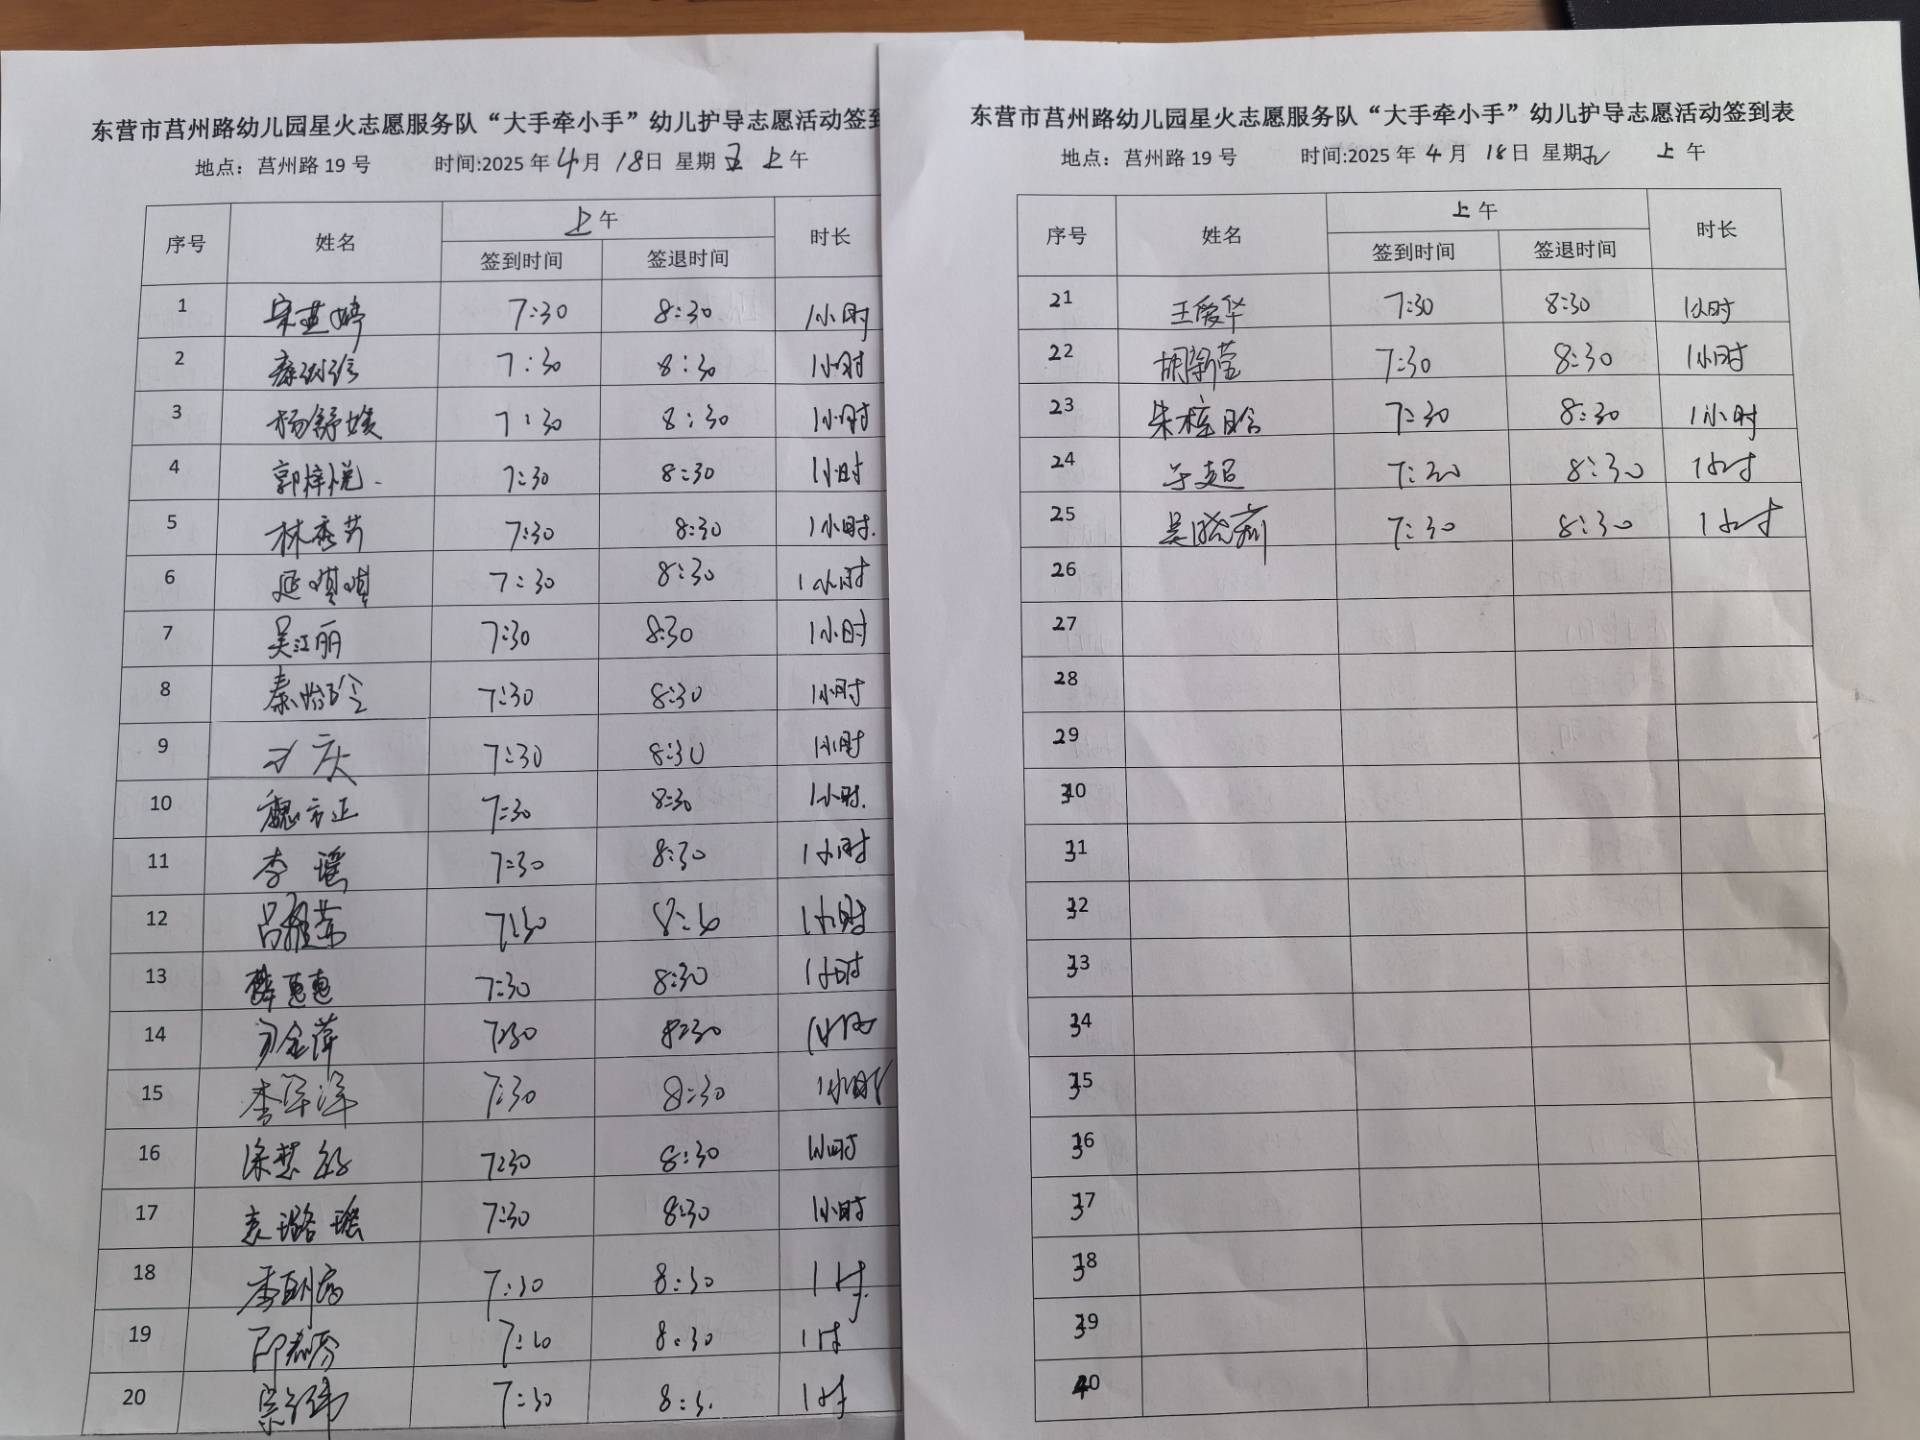 东营市莒州路幼儿园星火志愿服务队“大手牵小手”幼儿护导志愿活动签到
地点：莒州路 19 号 时间:2025 年 4 月 18 日 星期 五 上 午
序号 姓名 上 午 时长
签到时间 签退时间
1 宋 婷 7:30 8:30 1小时
2 7:30 8:30 1小时
3 杨舒媛 7:30 8:30 1小时
4 郭梓悦 7:30 8:30 1小时
5 林秀芳 7:30 8:30 1小时.
6 延琪琪 7:30 8:30 1小时
7 吴江丽 7:30 8:30 1小时
8 秦怡玲 7:30 8:30 1小时
9 刁庆 7:30 8:30 1小时
10 魏方正 7:30 8:30 1小时.
11 李瑶 7:30 8:30 1小时
12 吕 7:30 8:30 1小时
13 薛惠惠 7:30 8:30 1小时
14 金萍 7:30 8:30 1小时
15 李洋洋 7:30 8:30 1小时
16 徐慧 7:30 8:30 1小时
17 袁璐瑶 7:30 8:30 1小时
18 季 7:30 8:30 1时.
19 邱 7:30 8:30 1时
20 宗 7:30 8:3. 1时
东营市莒州路幼儿园星火志愿服务队“大手牵小手”幼儿护导志愿活动签到表
地点：莒州路 19 号 时间:2025 年 4 月 18 日 星期五 上 午
序号 姓名 上 午 时长
签到时间 签退时间
21 王爱华 7:30 8:30 1小时
22 胡新莹 7:30 8:30 1小时
23 朱梓晗 7:30 8:30 1小时
24 于超 7:30 8:30 1小时
25 吴晓莉 7:30 8:30 1小时
26
27
28
29
30
31
32
33
34
35
36
37
38
39
40